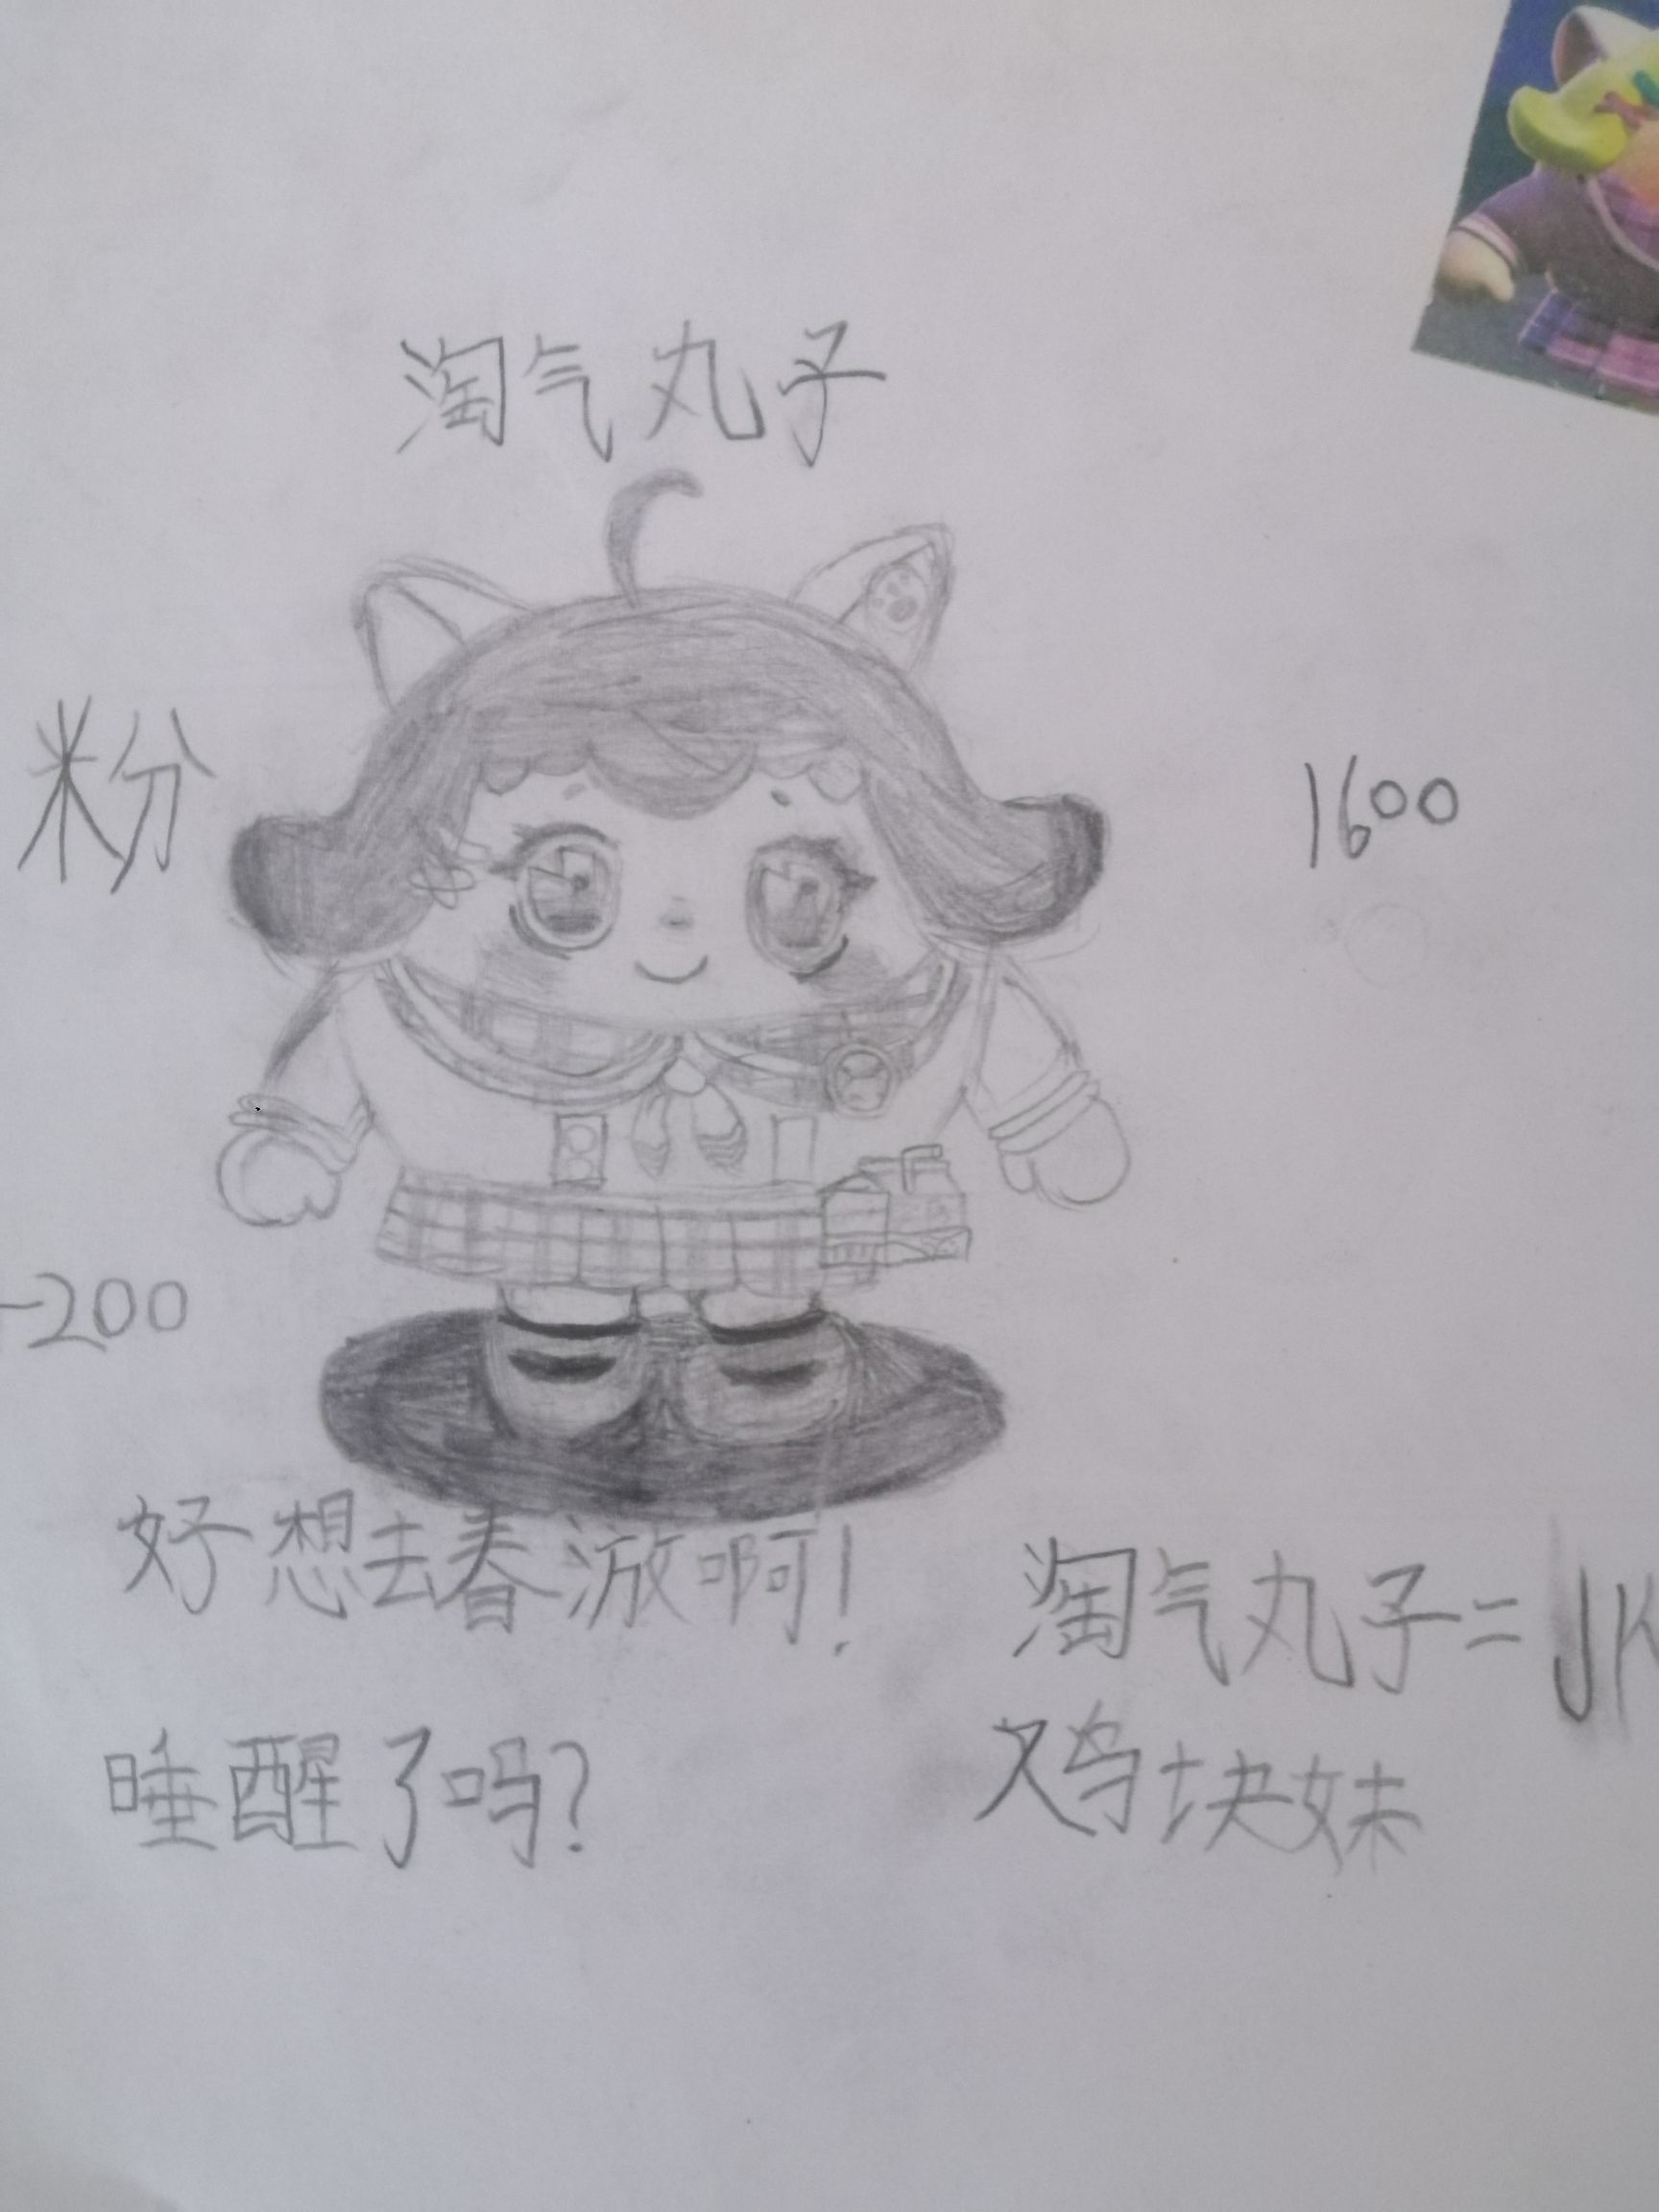 淘气丸子
粉
1600
-200
好想去春游啊!
淘气丸子=JK
鸡块妹
睡醒了吗?